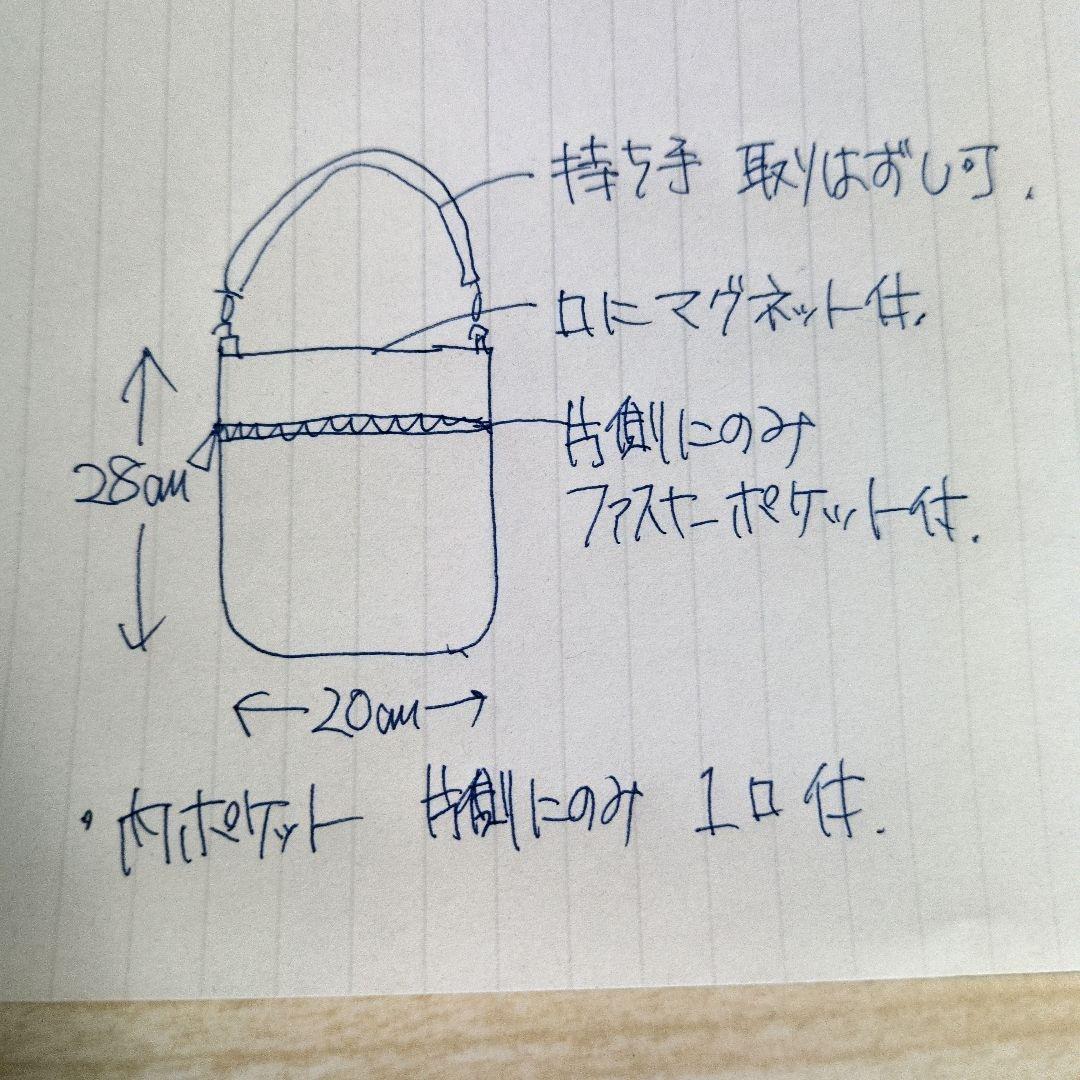 持ち手 取りはずし可.
口にマグネット付.
片側にのみ
ファスナーポケット付.
28cm
20cm
・内ポケット 片側にのみ 1口付.